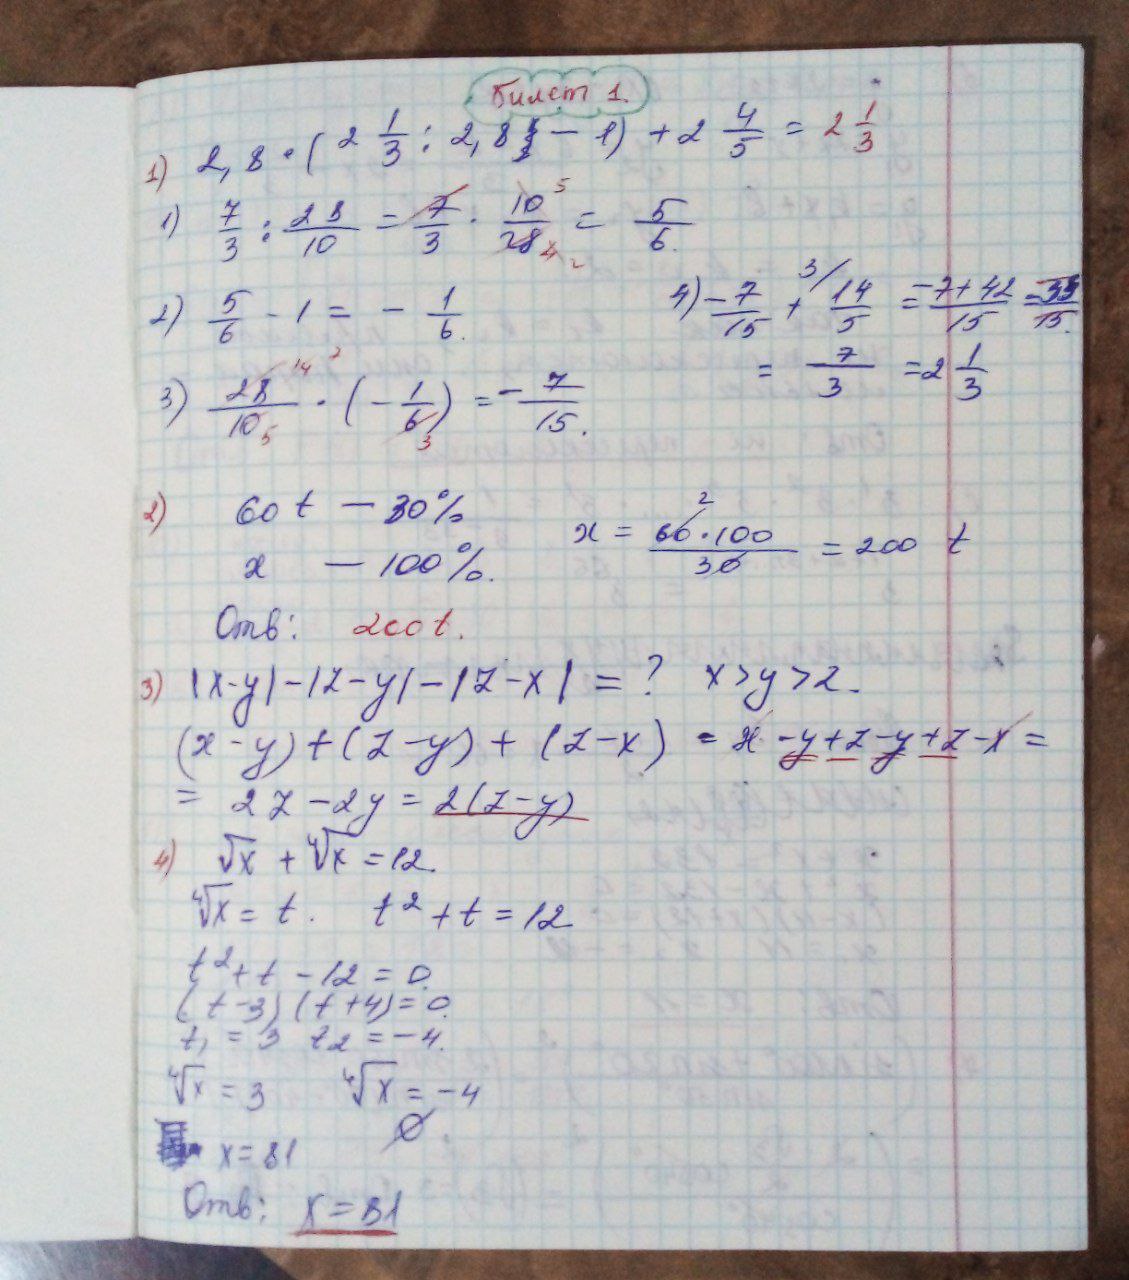 Билет 1.
1) 2,8 · (2 1/3 : 2,8 - 1) + 2 4/5 = 2 1/3
1) 7/3 : 28/10 = 7/3 · 10/28 = 5/6.
2) 5/6 - 1 = - 1/6.
3) 28/10 · (- 1/6) = - 7/15.
4) - 7/15 + 14/5 = -7+42/15 = 35/15.
= 7/3 = 2 1/3
2) 60 t — 30%
x — 100%.
x = 60·100/30 = 200 t
Отв: 200t.
3) |x-y| - |z-y| - |z-x| = ? x>y>z.
(x-y)+(z-y)+(z-x) = x-y+z-y+z-x=
= 2z-2y = 2(z-y)
4) √x + ⁴√x = 12.
⁴√x = t. t² + t = 12
t² + t - 12 = 0.
(t-3)(t+4)=0.
t₁ = 3 t₂ = -4.
⁴√x = 3 ⁴√x = -4
∅
x = 81
Отв: x = 81